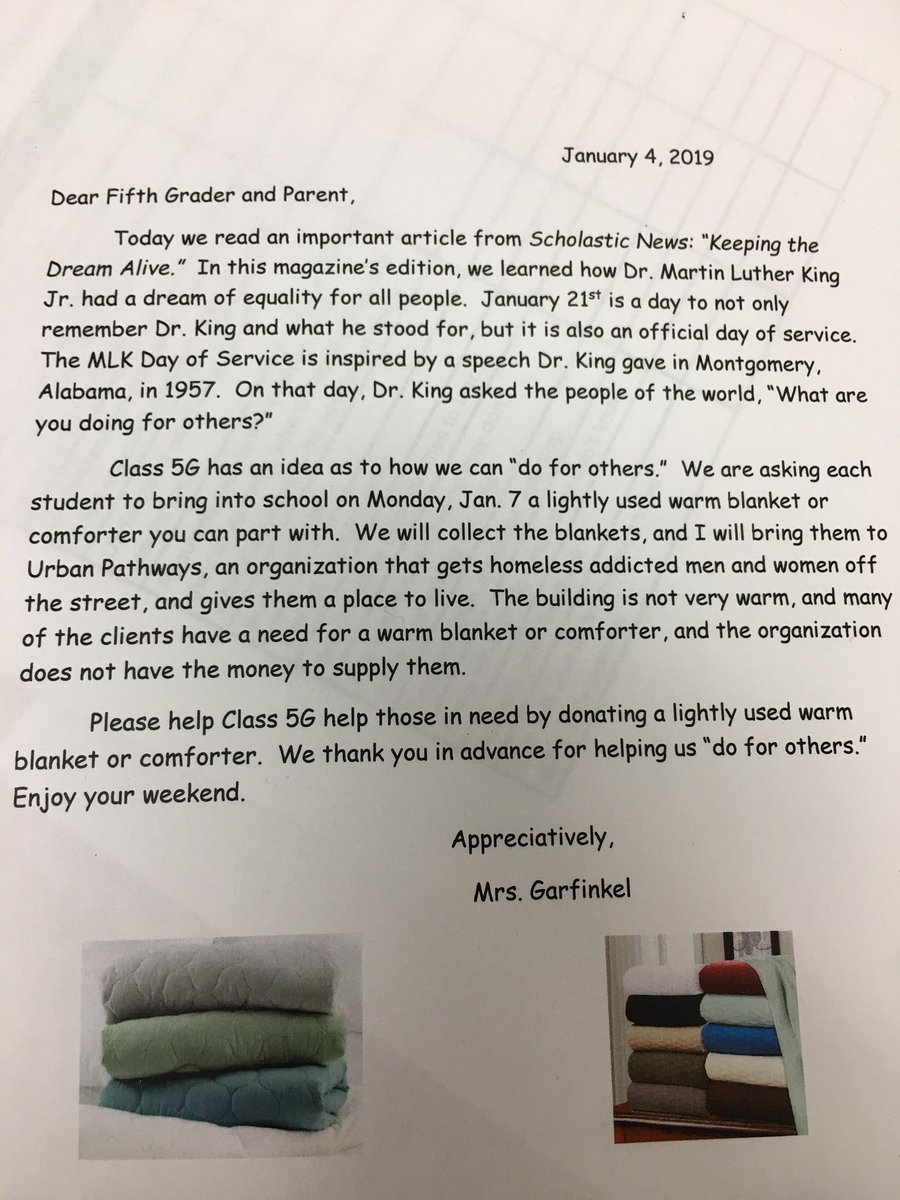 January 4, 2019
Dear Fifth Grader and Parent,
Today we read an important article from Scholastic News: “Keeping the
Dream Alive.” In this magazine’s edition, we learned how Dr. Martin Luther King
Jr. had a dream of equality for all people. January 21st is a day to not only
remember Dr. King and what he stood for, but it is also an official day of service.
The MLK Day of Service is inspired by a speech Dr. King gave in Montgomery,
Alabama, in 1957. On that day, Dr. King asked the people of the world, “What are
you doing for others?”
Class 5G has an idea as to how we can “do for others.” We are asking each
student to bring into school on Monday, Jan. 7 a lightly used warm blanket or
comforter you can part with. We will collect the blankets, and I will bring them to
Urban Pathways, an organization that gets homeless addicted men and women off
the street, and gives them a place to live. The building is not very warm, and many
of the clients have a need for a warm blanket or comforter, and the organization
does not have the money to supply them.
Please help Class 5G help those in need by donating a lightly used warm
blanket or comforter. We thank you in advance for helping us “do for others.”
Enjoy your weekend.
Appreciatively,
Mrs. Garfinkel